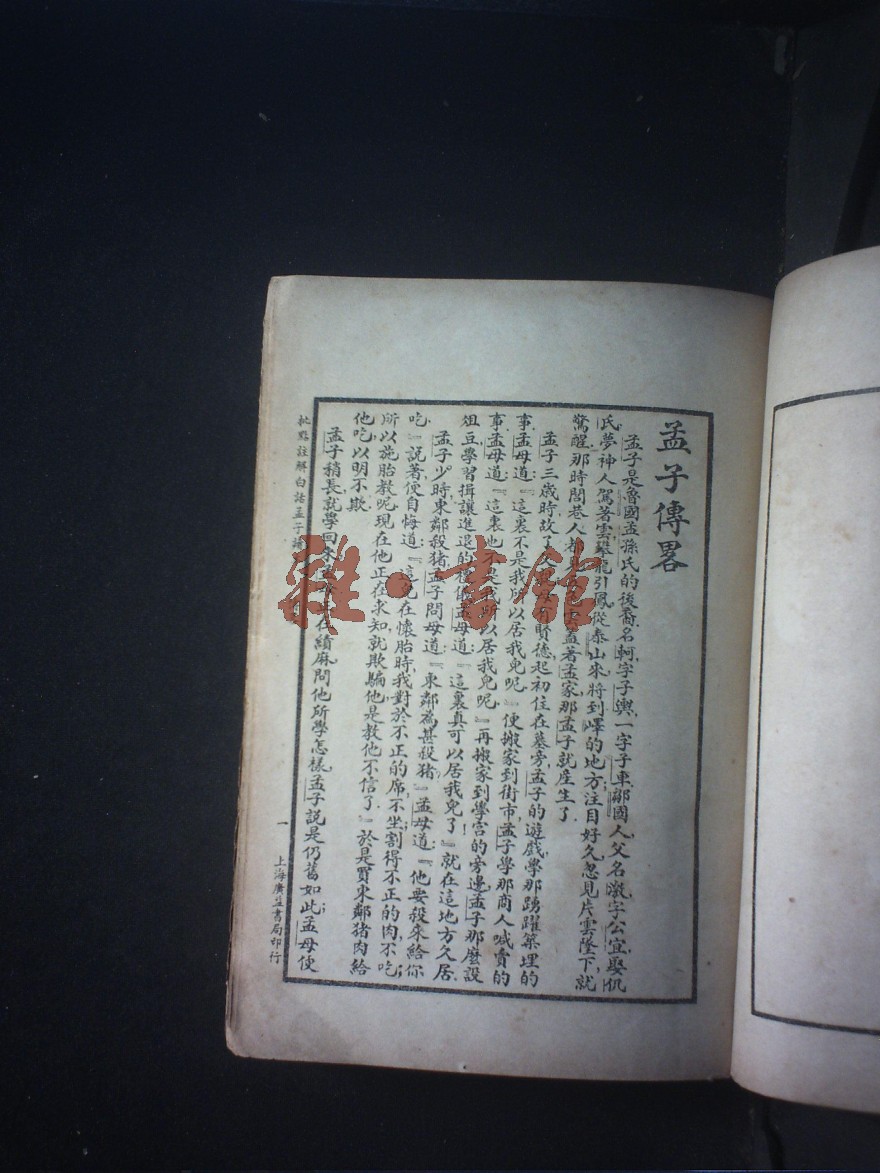 孟子傳畧
孟子是魯國孟孫氏的後裔名軻字子輿一字子車鄒國人父名激字公宜娶仉
氏夢神人駕著雲攀龍引鳳從泰山來將到嶧的地方注目好久忽見片雲墜下就
驚醒那時閭巷人都 蓋著孟家那孟子就産生了
孟子三歲時故了父 賢德起初住在墓旁孟子的遊戲學那踴躍築埋的
事孟母道『這裏不是我所以居我兒呢』便搬家到街市孟子學那商人喊賣的
事孟母道『這裏也不是我所以居我兒呢』再搬家到學宮的旁邊孟子那麽設
俎豆學習揖讓進退的 孟母道『這裏真可以居我兒了』就在這地方久居
孟子少時東鄰殺猪孟子問母道『東鄰為甚殺猪』孟母道『他要殺來給你
吃』說著便自悔道『這 在懷胎時我對於不正的席不坐割得不正的肉不吃
所以施胎教呢現在他正在求知就欺騙他是教他不信了』於是買東鄰猪肉給
他吃以明不欺
孟子稍長就學回來孟 在績麻問他所學怎樣孟子説是仍舊如此孟母便
批點註解白話孟子讀
一
上海廣益書局印行
雜·書館